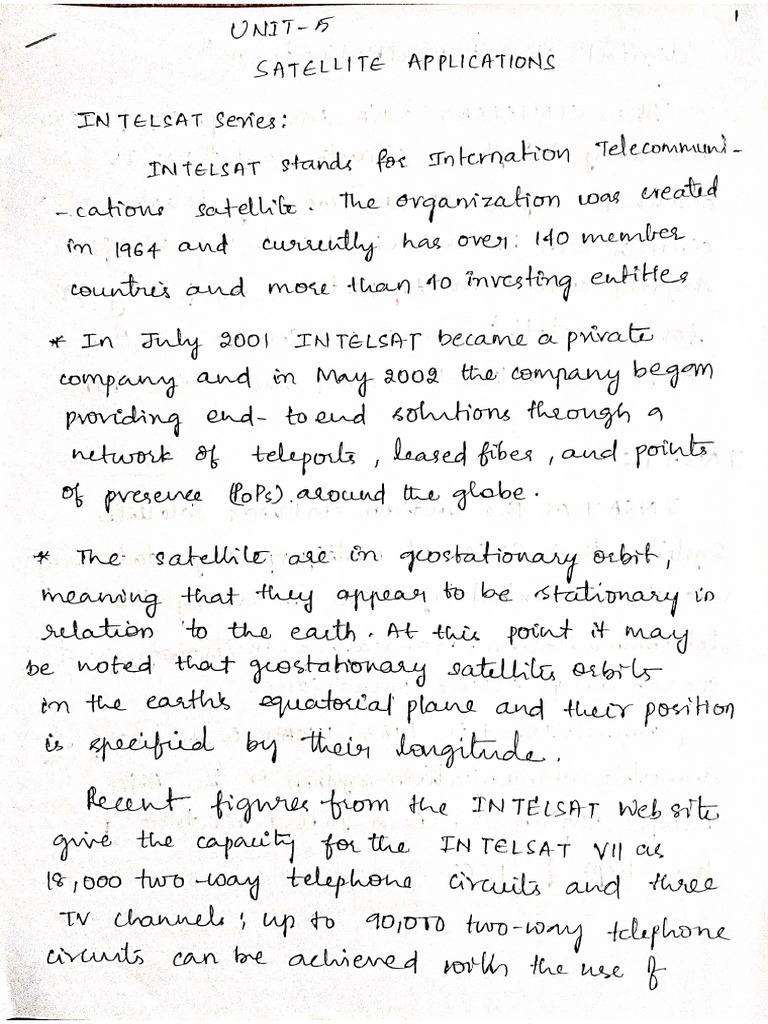 1
UNIT-5
SATELLITE APPLICATIONS
INTELSAT Series:
INTELSAT stands for Internation Telecommuni-
-cations satellite. The organization was created
in 1964 and currently has over 140 member
countries and more than 40 investing entities
* In July 2001 INTELSAT became a private
company and in May 2002 the company began
providing end-to end solutions through a
network of teleports, leased fiber, and points
of presence (PoPs) around the globe.
* The satellite are in geostationary orbit,
meaning that they appear to be stationary in
relation to the earth. At this point it may
be noted that geostationary satellites orbits
in the earth's equatorial plane and their position
is specified by their longitude.
Recent figures from the INTELSAT Web site
give the capacity for the INTELSAT VII as
18,000 two-way telephone circuits and three
TV channels; up to 90,000 two-way telephone
circuits can be achieved with the use of